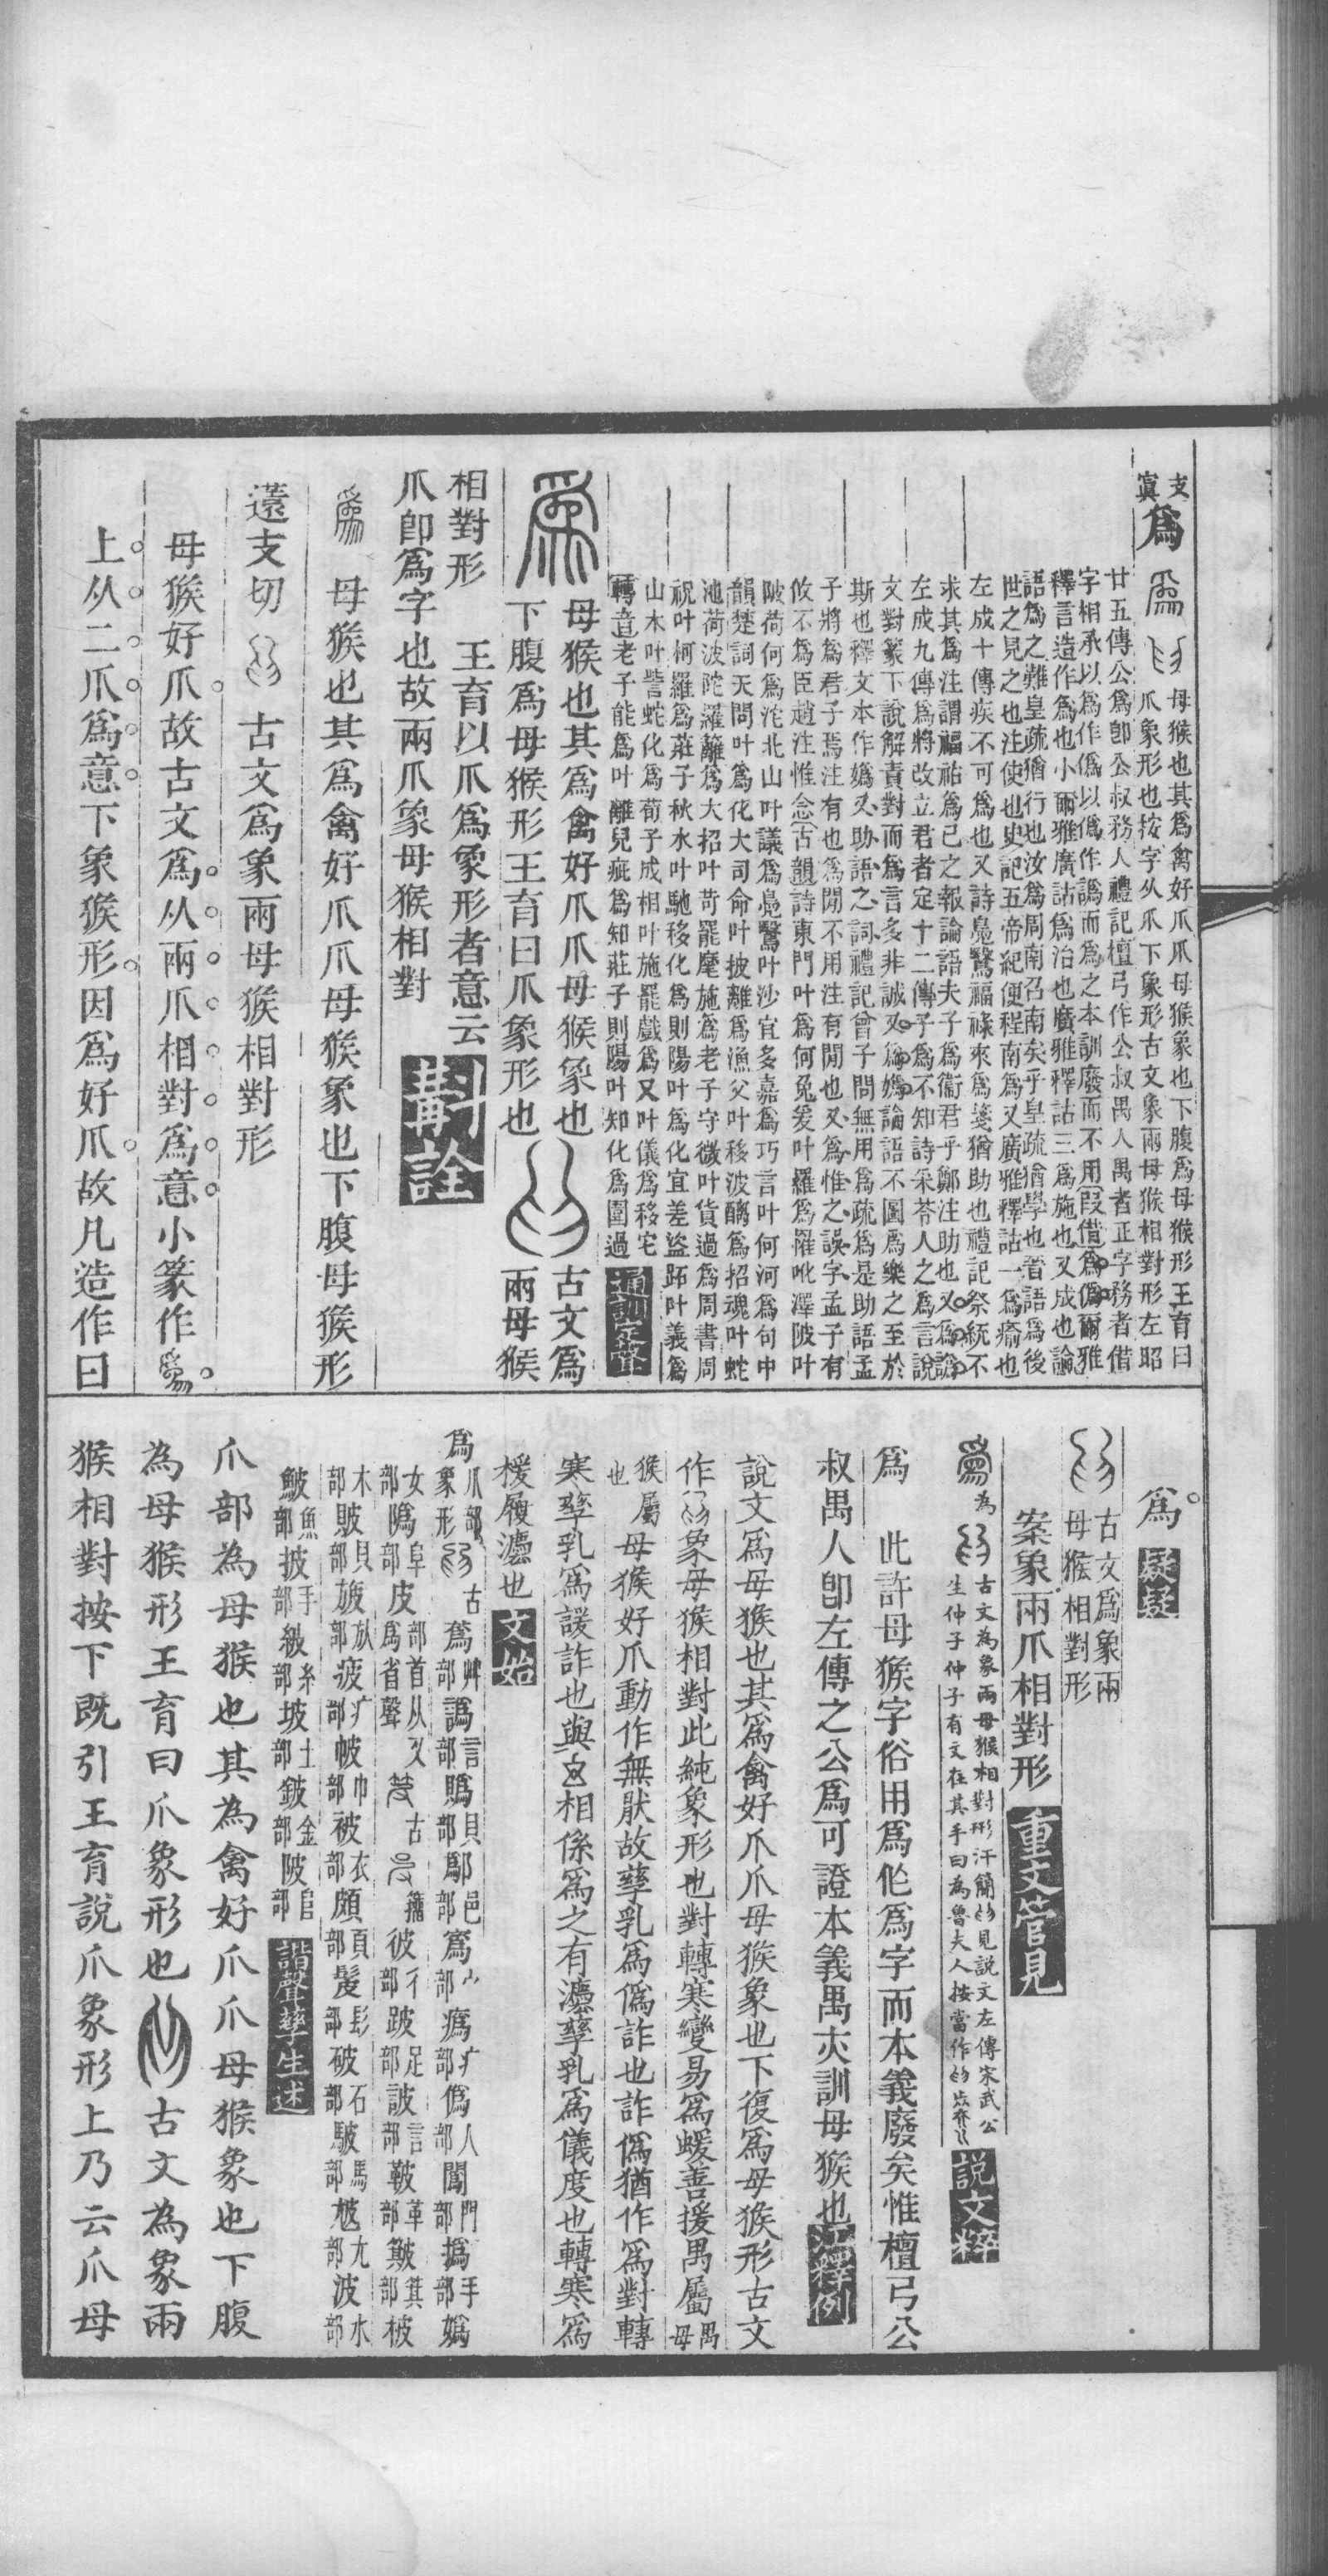 支
寘
為
母猴也其爲禽好爪爪母猴象也下腹爲母猴形王育曰
爪象形也按字从爪下象形古文象兩母猴相對形左昭
廿五傳公爲卽公叔務人禮記檀弓作公叔禺人禺者正字務者借
字相承以爲作僞以僞作譌而爲之本訓廢而不用叚借爲僞爾雅
釋言造作爲也小爾雅廣詁爲治也廣雅釋詁三爲施也又成也論
語爲之難皇疏猶行也汝爲周南召南矣乎皇疏猶學也晉語爲後
世之見之也注使也史記五帝紀便程南爲又廣雅釋詁一爲癒也
左成十傳疾不可爲也又詩鳧鷖福祿來爲箋猶助也禮記祭統不
求其爲注謂福祐爲已之報論語夫子爲衞君乎鄭注助也又爲譌
左成九傳爲將改立君者定十二傳子爲不知詩采苓人之爲言說
文對篆下說解責對而爲言多非誠又爲媯論語不圖爲樂之至於
斯也釋文本作媯又助語之詞禮記曾子問無用爲疏爲是助語孟
子將爲君子焉注有也爲閒不用注有閒也又爲惟之誤字孟子有
攸不爲臣趙注惟念古韻詩東門叶爲何兔爰叶羅爲罹吪澤陂叶
陂荷何爲沱北山叶議爲鳧鷖叶沙宜多嘉爲巧言叶何河爲句中
韻楚詞天問叶爲化大司命叶披離爲漁父叶移波醨爲招魂叶蛇
池荷波陀羅籬爲大招叶苛罷麾施爲老子守微叶貨過爲周書周
祝叶柯羅爲莊子秋水叶馳移化爲則陽叶爲化宜差盜跖叶義爲
山木叶訾蛇化爲荀子成相叶施罷戲爲又叶儀爲移宅
轉音老子能爲叶離兒疵爲知莊子則陽叶知化爲圍過
通訓定聲
母猴也其爲禽好爪爪母猴象也
下腹爲母猴形王育曰爪象形也
古文爲
兩母猴
相對形　王育以爪爲象形者意云
爪卽爲字也故兩爪象母猴相對
詮
母猴也其爲禽好爪爪母猴象也下腹母猴形
薳支切　古文爲象兩母猴相對形
母猴好爪故古文爲从兩爪相對爲意小篆作
上从二爪爲意下象猴形因爲好爪故凡造作曰
爲　疑疑
古文爲象兩
母猴相對形
案象兩爪相對形　重文管見
為
古文為象兩母猴相對形汗簡見說文左傳宋武公
生仲子仲子有文在其手曰為魯夫人按當作
說文粹
爲　此許母猴字俗用爲作爲字而本義廢矣惟檀弓公
叔禺人卽左傳之公爲可證本義禺亦訓母猴也　江釋例
說文爲母猴也其爲禽好爪爪母猴象也下復爲母猴形古文
作象母猴相對此純象形也對轉寒變易爲蝯善援禺屬禺母
猴屬也　母猴好爪動作無猒故孳乳爲僞詐也詐僞猶作爲對轉
寒孳乳爲諼詐也與相係爲之有灋孳乳爲儀度也轉寒爲
楥履灋也　文始
爲爪部象形古蔿艸部譌言部䞈貝部鄬邑部寪宀部㾻疒部僞人部闖門部撝手部媯
女部隓阜部皮部首从又爲省聲古籒彼彳部跛足部詖言部鞁革部簸箕部柀
木部貱貝部旇㫃部疲疒部帔巾部被衣部頗頁部髲髟部破石部駊馬部尳尣部波水部
鮍魚部披手部紴糸部坡土部鈹金部陂𨸏部　諧聲孳生述
爪部為母猴也其為禽好爪爪母猴象也下腹
為母猴形王育曰爪象形也　古文為象兩
猴相對按下既引王育說爪象形上乃云爪母